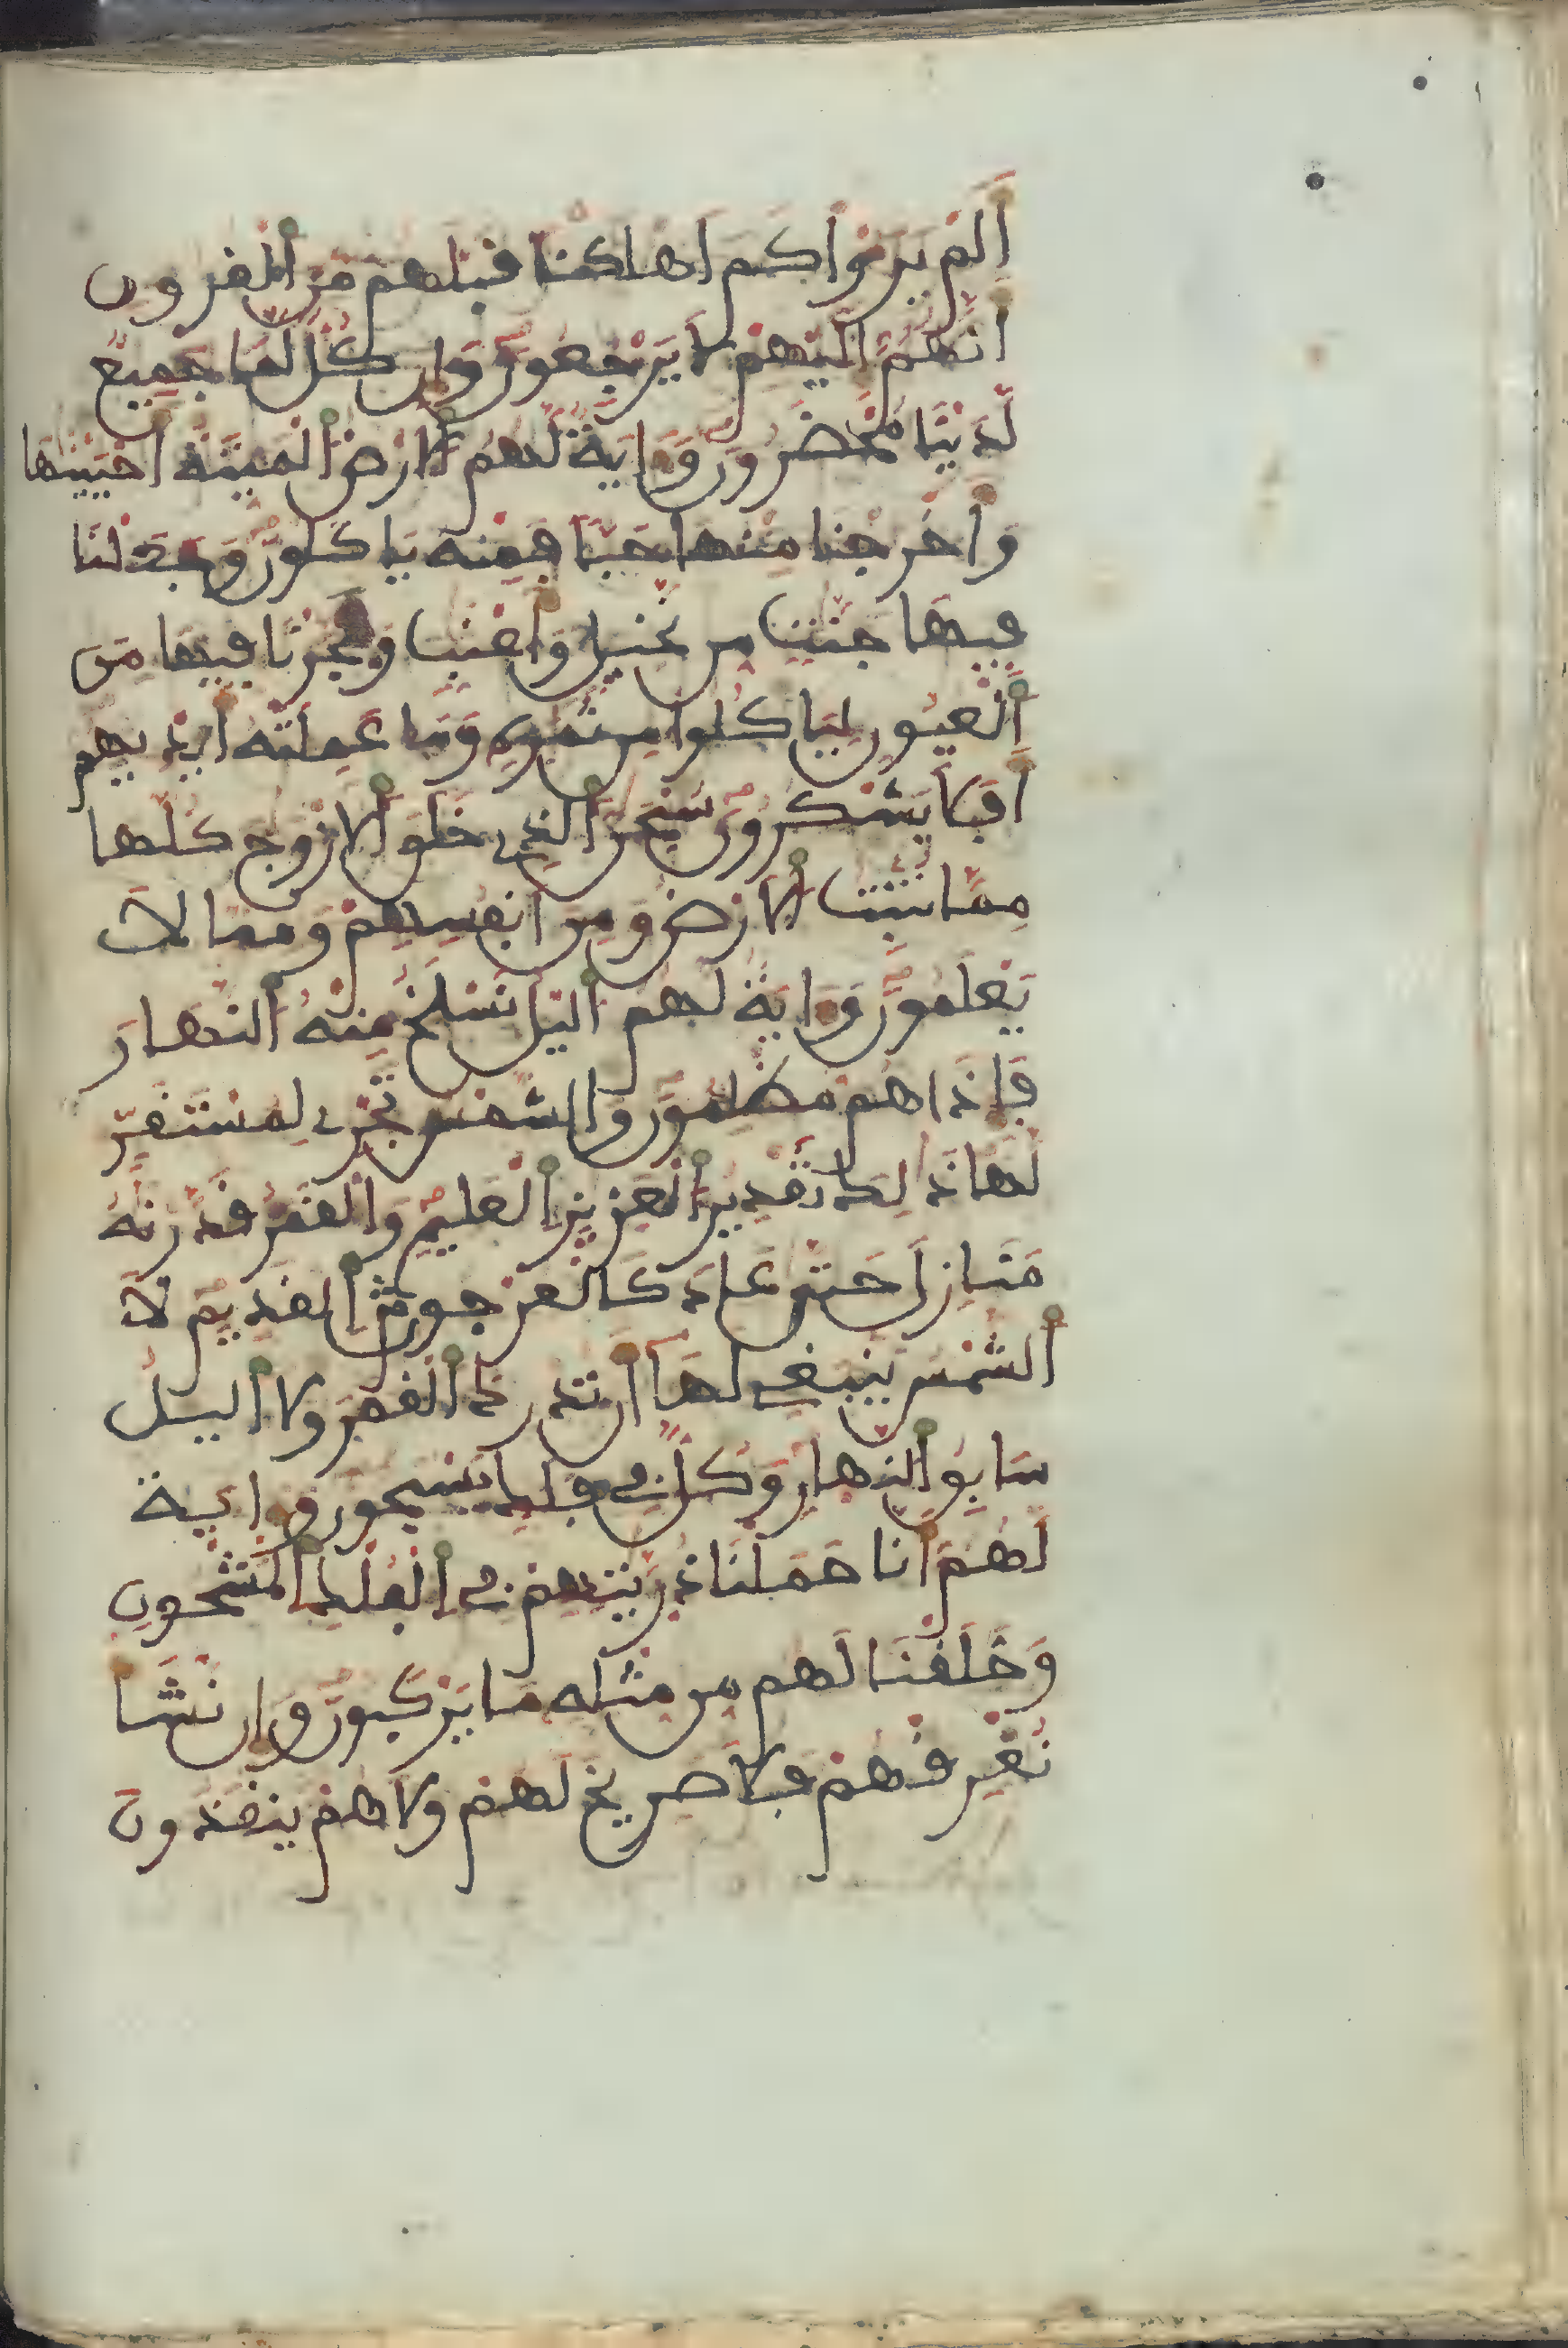 ألم يروا كم اهلكنا قبلهم من ألقرون
أنهم إليهم لا يرجعون وإن كل لما جميع
لدينا محضرون وءاية لهم ألارض ألميتة أحيينها
وأخرجنا منها حبا فمنه ياكلون وجعلنا
فيها جنت من نخيل وأعنب وفجرنا فيها من
ألعيون لياكلوا من ثمره وما عملته أيديهم
أفلا يشكرون سبحن ألذي خلق ألازوج كلها
مما تنبت ألارض ومن انفسهم ومما لا
يعلمون وءاية لهم أليل نسلخ منه ألنهار
فإذا هم مظلمون والشمس تجري لمستقر
لها ذلك تقدير ألعزيز ألعليم والقمر قدرنه
منازل حتى عاد كالعرجون ألقديم لا
ألشمس ينبغي لها أن تدرك ألقمر ولا أليل
سابق ألنهار وكل في فلك يسبحون وءاية
لهم أنا حملنا ذريتهم في ألفلك ألمشحون
وخلقنا لهم من مثله ما يركبون وإن نشأ
نغرقهم فلا صريخ لهم ولا هم ينقذون